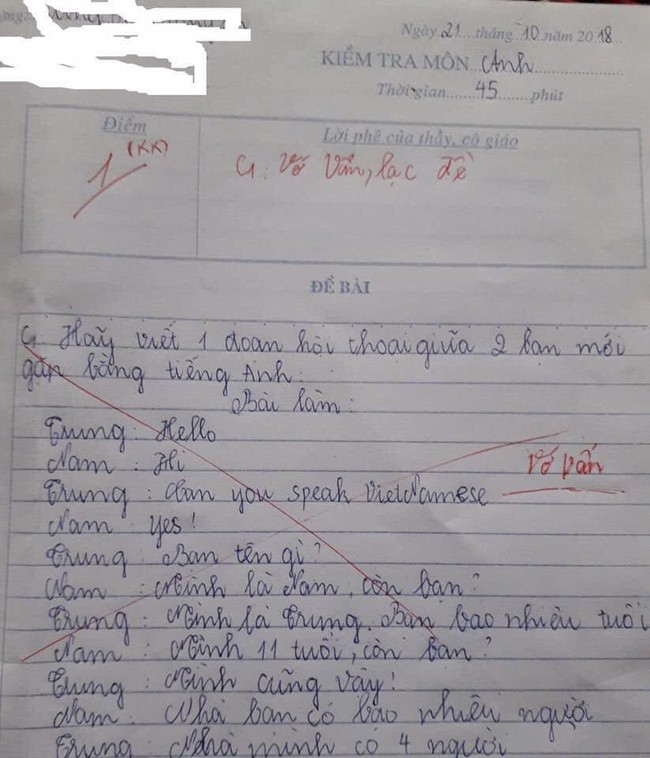 Ngày 21 tháng 10 năm 2018
KIỂM TRA MÔN Anh
Thời gian 45 phút
Điểm
Lời phê của thầy, cô giáo
1 (KK)
G: Vớ Vẩn, lạc đề
ĐỀ BÀI
G Hãy viết 1 đoan hội thoại giữa 2 bạn mới
gặp bằng tiếng Anh:
Bài làm:
Trung: Hello
Nam: Hi
Vớ Vẩn
Trung: Can you speak VietNamese
Nam: Yes!
Trung: Bạn tên gì?
Nam: Mình là Nam, còn bạn?
Trung: Mình là Trung. Bạn bao nhiêu tuổi
Nam: Mình 11 tuổi, còn bạn?
Trung: Mình cũng vậy!
Nam: Nhà bạn có bao nhiêu người
Trung: Nhà mình có 4 người